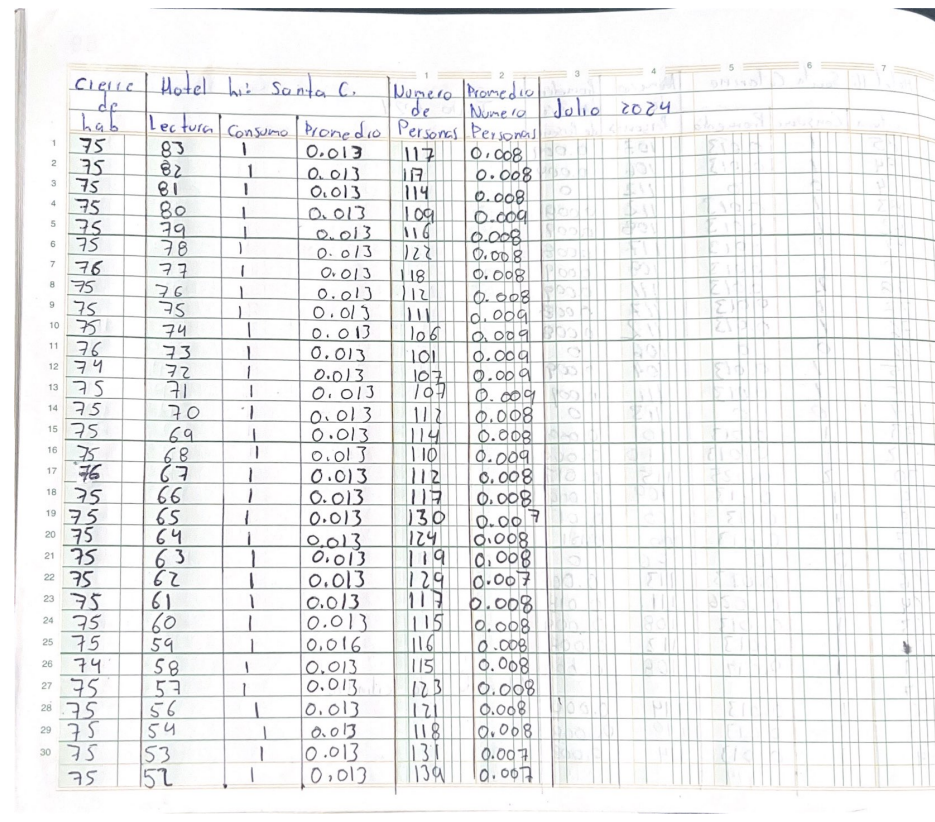 1 2 3 4 5 6 7
Cierre de hab Hotel hi: Santa C. Numero de Personas Promedio Numero Personas Julio 2024
Lectura Consumo Promedio
1 75 83 1 0.013 117 0.008
2 75 82 1 0.013 117 0.008
3 75 81 1 0.013 114 0.008
4 75 80 1 0.013 109 0.009
5 75 79 1 0.013 116 0.008
6 75 78 1 0.013 122 0.008
7 76 77 1 0.013 118 0.008
8 75 76 1 0.013 112 0.008
9 75 75 1 0.013 111 0.009
10 75 74 1 0.013 106 0.009
11 76 73 1 0.013 101 0.009
12 74 72 1 0.013 107 0.009
13 75 71 1 0.013 107 0.009
14 75 70 1 0.013 112 0.008
15 75 69 1 0.013 114 0.008
16 75 68 1 0.013 110 0.009
17 76 67 1 0.013 112 0.008
18 75 66 1 0.013 117 0.008
19 75 65 1 0.013 130 0.007
20 75 64 1 0.013 124 0.008
21 75 63 1 0.013 119 0.008
22 75 62 1 0.013 129 0.007
23 75 61 1 0.013 117 0.008
24 75 60 1 0.013 115 0.008
25 75 59 1 0.016 116 0.008
26 74 58 1 0.013 115 0.008
27 75 57 1 0.013 123 0.008
28 75 56 1 0.013 121 0.008
29 75 54 1 0.013 118 0.008
30 75 53 1 0.013 131 0.007
75 52 1 0.013 139 0.007